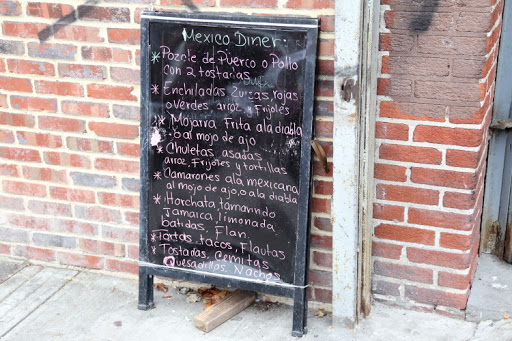 Mexico Diner.
* Pozole de Puerco o Pollo
con 2 tostadas
* Enchiladas Zuizas, rojas
o Verdes arroz y Frijoles
* Mojarra Frita a la diabla
o al mojo de ajo
* Chuletas asadas
arroz, Frijoles y tortillas
* Camarones a la mexicana
al mojo de ajo, o a la diabla
* Horchata, tamarindo
Jamaica, limonada
Batidas, Flan.
* Tortas, tacos, Flautas
* Tostadas, Cemitas
Quesadillas, Nachos